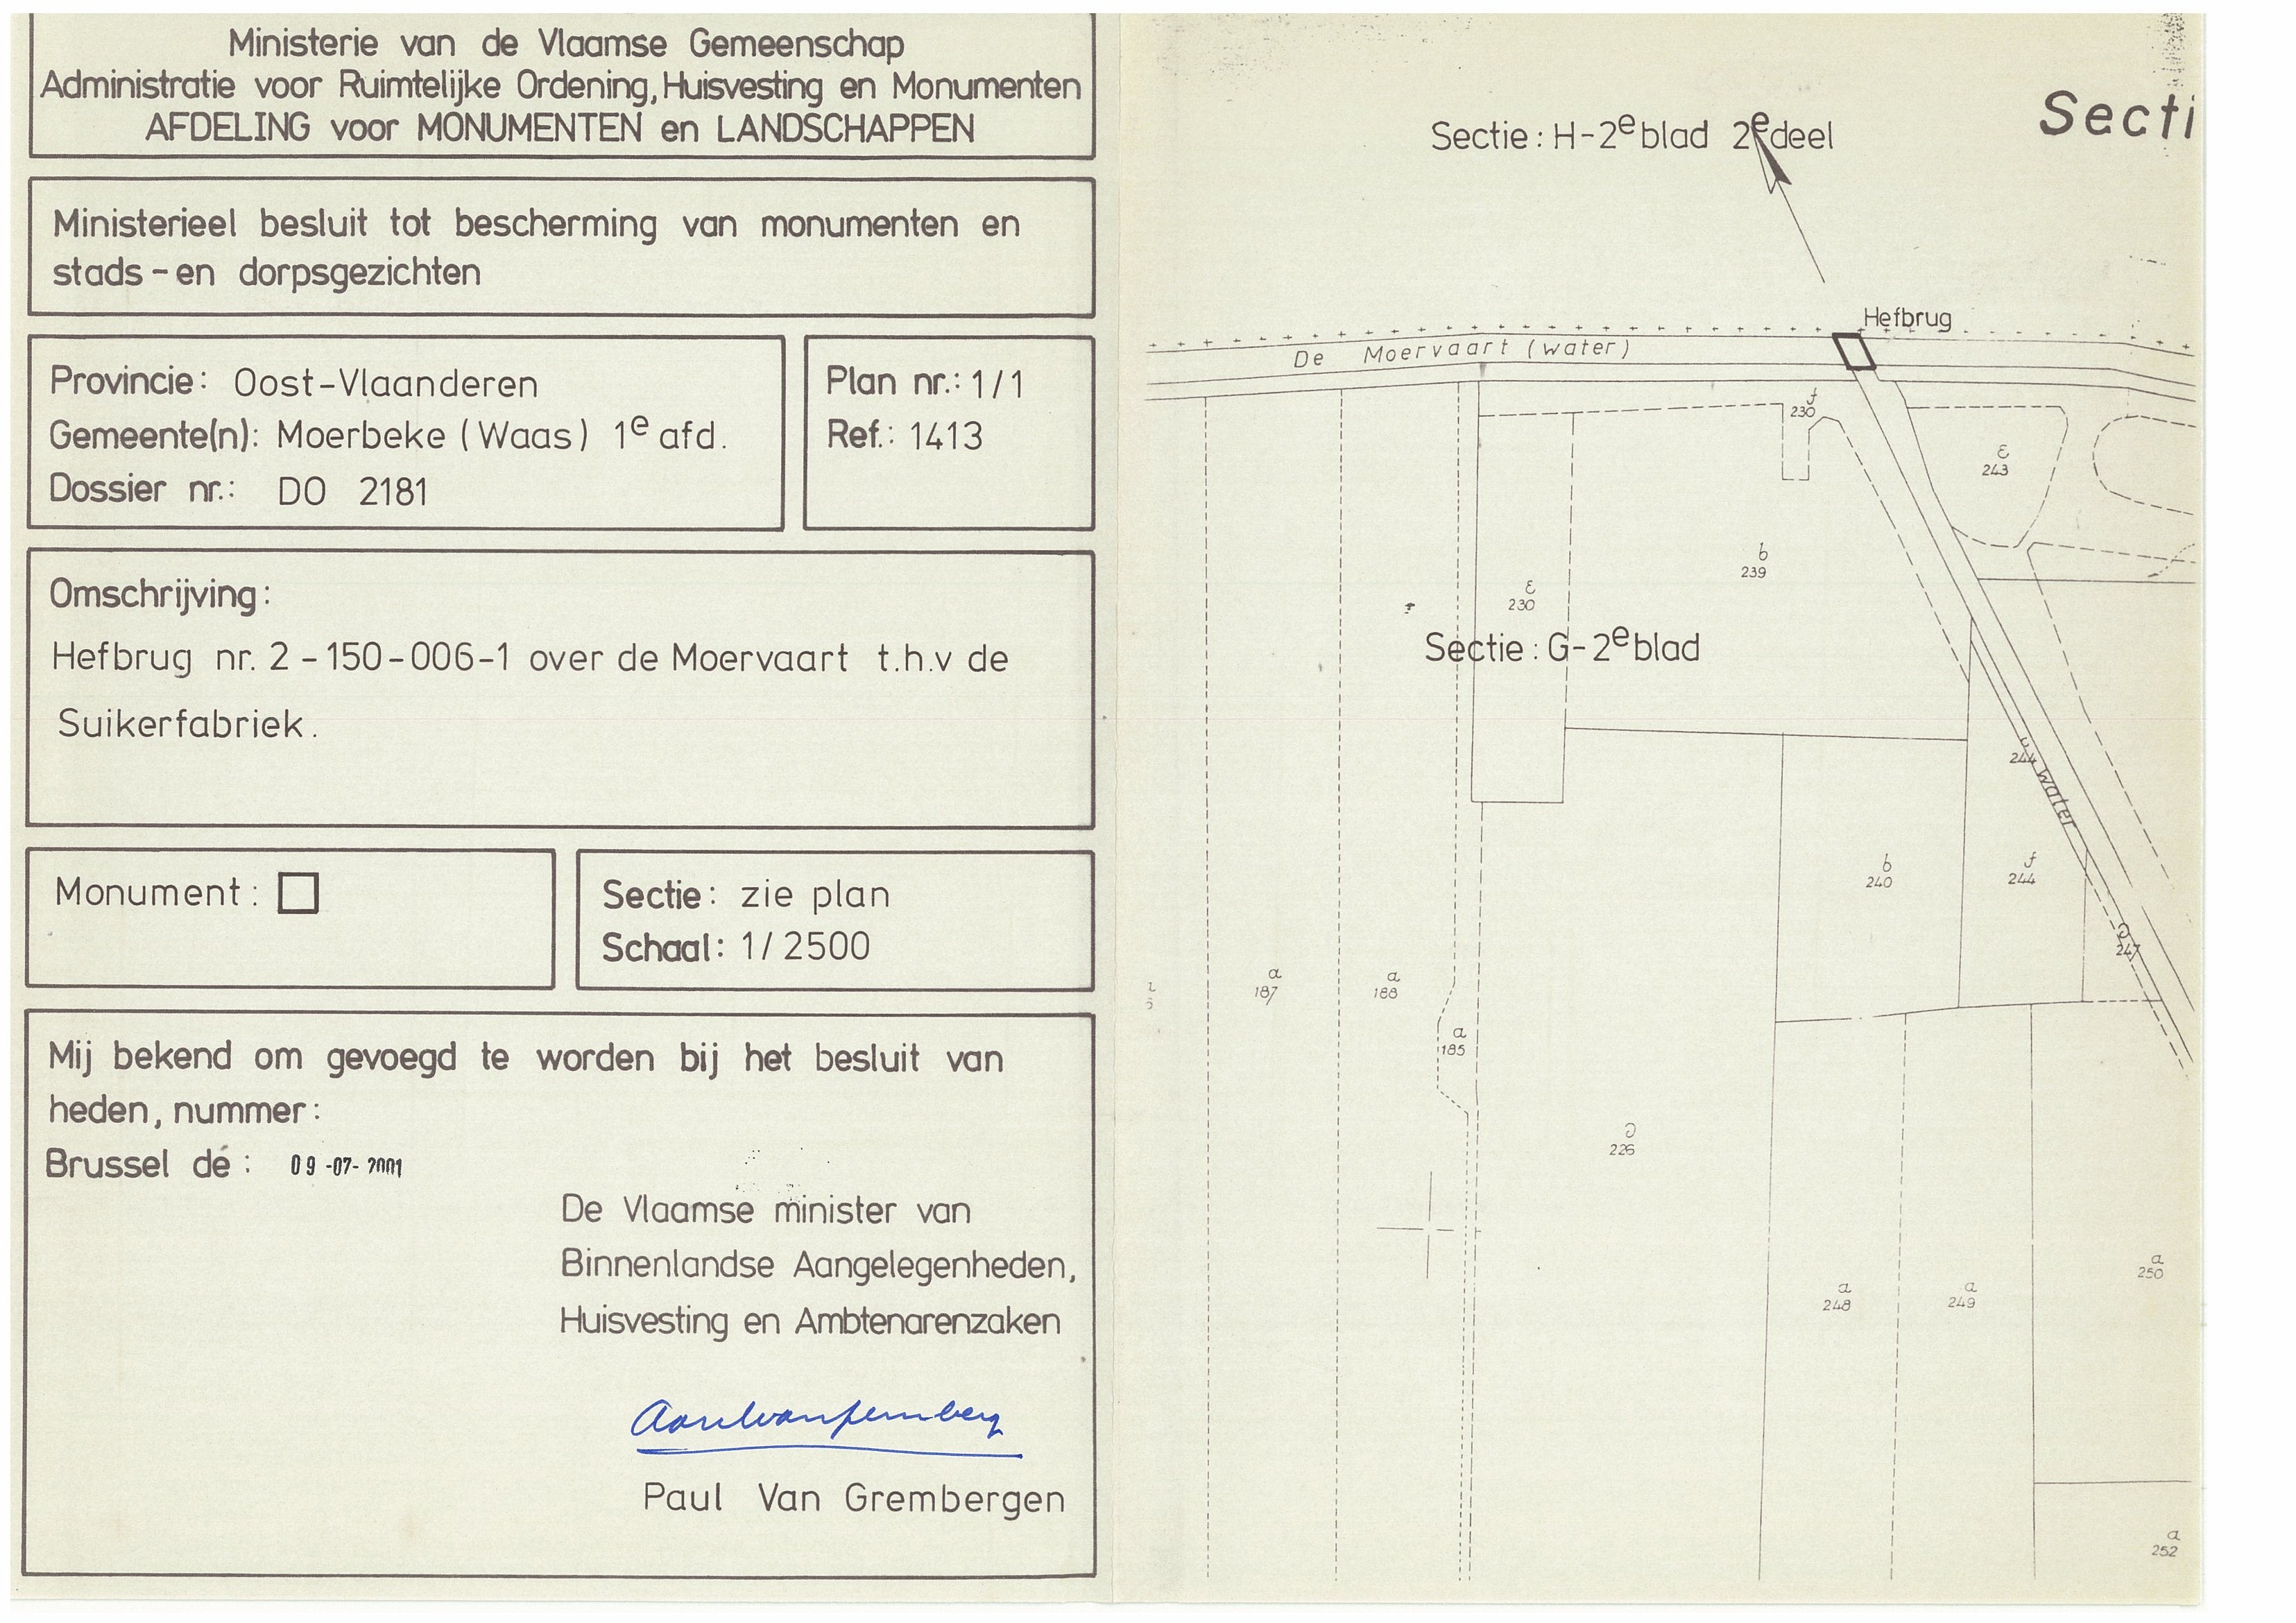 Ministerie van de Vlaamse Gemeenschap
Administratie voor Ruimtelijke Ordening, Huisvesting en Monumenten
AFDELING voor MONUMENTEN en LANDSCHAPPEN
Ministerieel besluit tot bescherming van monumenten en
stads-en dorpsgezichten
Provincie: Oost-Vlaanderen
Gemeente(n): Moerbeke (Waas) 1e afd.
Dossier nr.: DO 2181
Plan nr.: 1/1
Ref.: 1413
Omschrijving:
Hefbrug nr. 2-150-006-1 over de Moervaart t.h.v de
Suikerfabriek.
Monument:
Sectie: zie plan
Schaal: 1/2500
Mij bekend om gevoegd te worden bij het besluit van
heden, nummer:
Brussel de: 09-07-2001
De Vlaamse minister van
Binnenlandse Aangelegenheden,
Huisvesting en Ambtenarenzaken
Paul Van Grembergen
Secti
Sectie: H-2e blad 2e deel
Hefbrug
De Moervaart (water)
f
230
243
b
239
230
Sectie: G-2e blad
244
water
b
240
f
244
247
a
187
a
188
a
185
226
a
248
a
249
a
250
a
252